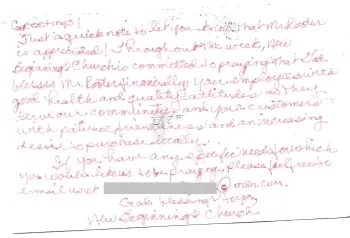 Greetings!
Just a quick note to let you know that Mr. Rooter
is appreciated! Throughout the week, New
Beginnings Church is committed to praying that God
blesses Mr. Rooter financially, your employees with
good health and quality attitudes as they
serve our community, and your customers
with patience, friendliness and an increasing
desire to purchase locally.
If you have any specific needs for which
you would like us to be praying, please feel free to
e-mail us at @msn.com.
God's blessings to you,
New Beginnings Church